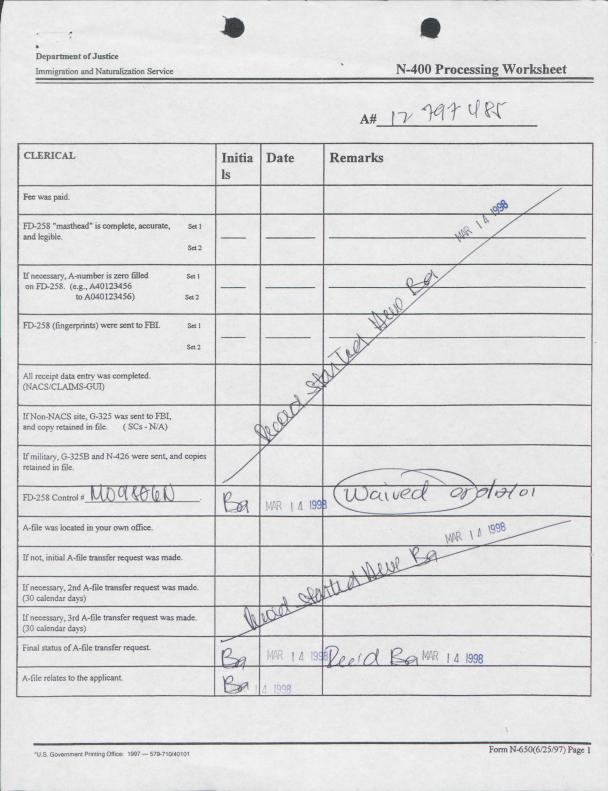 Department of Justice
Immigration and Naturalization Service
N-400 Processing Worksheet
A# 12 797 485
CLERICAL Initia Date Remarks
ls
Fee was paid.
FD-258 "masthead" is complete, accurate, Set 1
and legible.
Set 2
MAR 14 1998
If necessary, A-number is zero filled Set 1
on FD-258. (e.g., A40123456
to A040123456) Set 2
FD-258 (fingerprints) were sent to FBI. Set 1
Set 2
Record Started Here Ba
All receipt data entry was completed.
(NACS/CLAIMS-GUI)
If Non-NACS site, G-325 was sent to FBI,
and copy retained in file. ( SCs - N/A)
If military, G-325B and N-426 were sent, and copies
retained in file.
FD-258 Control # M09806N . Ba MAR 14 1998 Waived
A-file was located in your own office.
MAR 14 1998
If not, initial A-file transfer request was made.
If necessary, 2nd A-file transfer request was made.
(30 calendar days)
Record Started Here Ba
If necessary, 3rd A-file transfer request was made.
(30 calendar days)
Final status of A-file transfer request. Ba MAR 14 1998 Rec'd Ba MAR 14 1998
A-file relates to the applicant. Ba 14 1998
*U.S. Government Printing Office: 1997 — 579-710/40101
Form N-650(6/25/97) Page 1